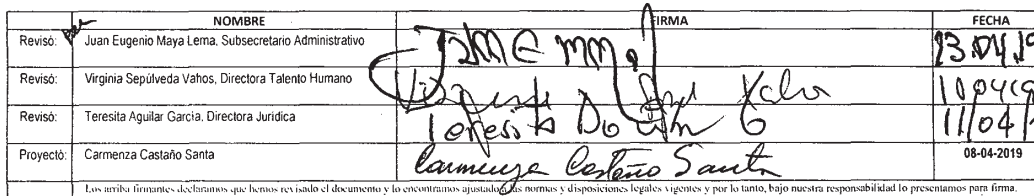 NOMBRE FIRMA FECHA
Revisó: Juan Eugenio Maya Lema, Subsecretario Administrativo
Revisó: Virginia Sepúlveda Vahos, Directora Talento Humano
Revisó: Teresita Aguilar García, Directora Jurídica 11/04/
Proyectó: Carmenza Castaño Santa Carmenza Castaño Santa 08-04-2019
Los arriba firmantes declaramos que hemos revisado el documento y lo encontramos ajustado a las normas y disposiciones legales vigentes y por lo tanto, bajo nuestra responsabilidad lo presentamos para firma.